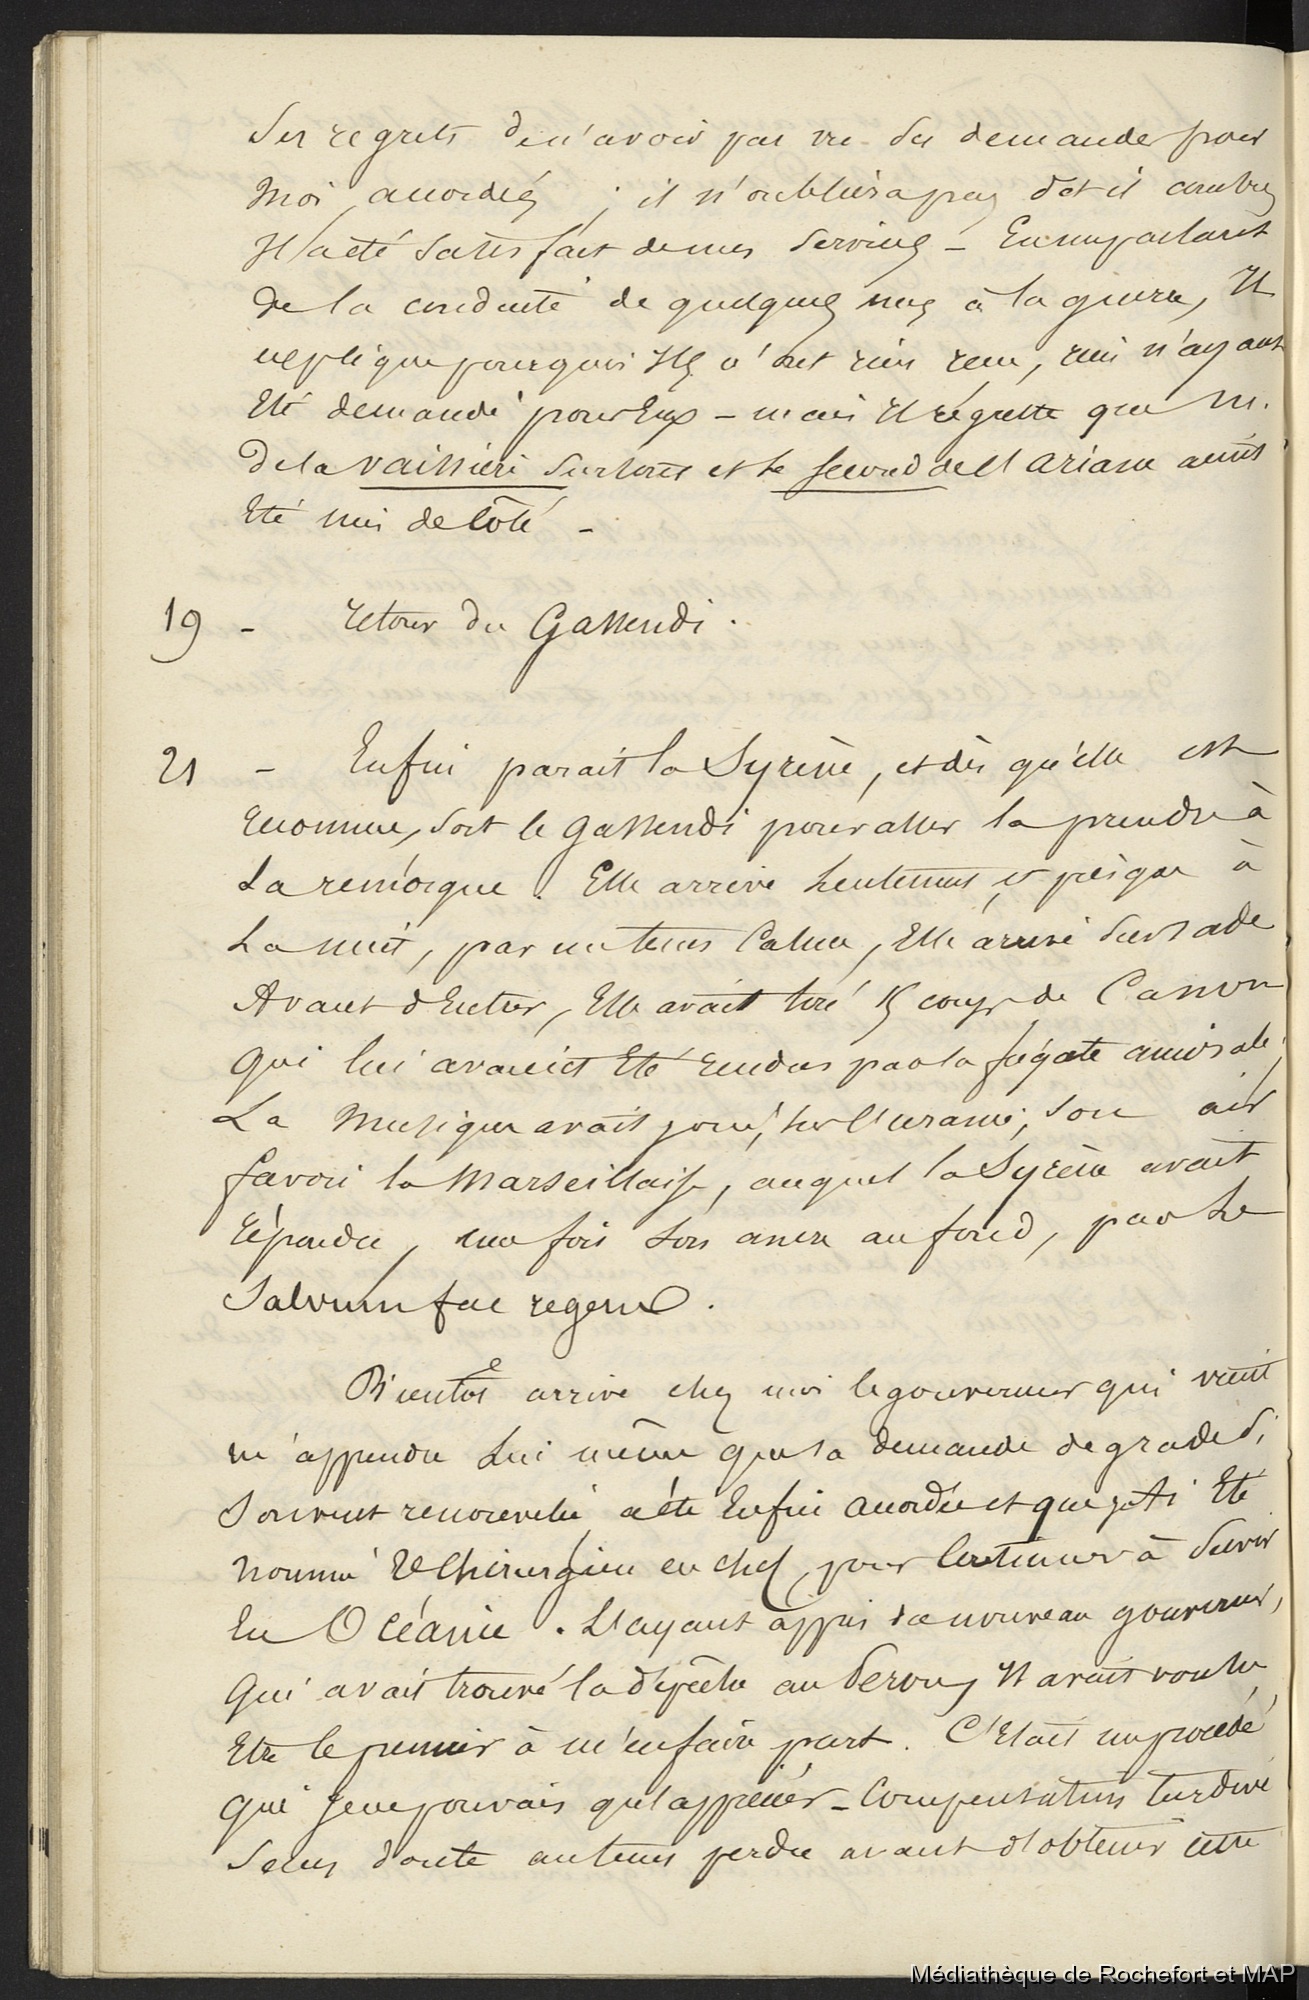 Ses regrets de n'avoir pas vu ses demandes pour
moi accordées ; il n'oubliera pas dit il combien
Il a été satisfait de mes services - En me parlant
de la conduite de quelques uns à la guerre, Il
explique pourquoi Ils n'ont rien reçu, rien n'ayant
Eté demandé pour Eux - mais Il regrette que M.
de la vaissière surtout et le second de l'ariane aient
Eté mis de Côté -
19 - retour du Gassendi.
21 - Enfin parait la Syrène, et dès qu'elle est
reconnue, sort le gassendi pour aller la prendre à
La remorque. Elle arrive Lentement et presque à
La nuit, par un tems Calme, Elle arrive sur rade
Avant d'Entrer, Elle avait tiré coups de Canon
qui lui avaient Eté rendus par la frégate amirale,
La Musique avait joué, sur l'uranie, son air
favori la Marseillaise, auquel la Syrène avait
répondu, une fois son ancre au fond, par Le
Salvum fac regem.
Bientot arrive chez moi le gouverneur qui vient
m'apprendre Lui même que sa demande de grade si
souvent renouvelée a été Enfin accordée et que j'ai Eté
nommé 2e Chirurgien en chef, pour Continuer à servir
En Océanie. L'ayant appris du nouveau gouverneur,
qui avait trouvé la dépêche au Perou, Il avait voulu
Etre le premier à m'en faire part. C'Etait un procédé
que je ne pouvais qu'apprécier - Compensation tardive
Sans doute au tems perdu avant d'obtenir cette
Médiathèque de Rochefort et MAP